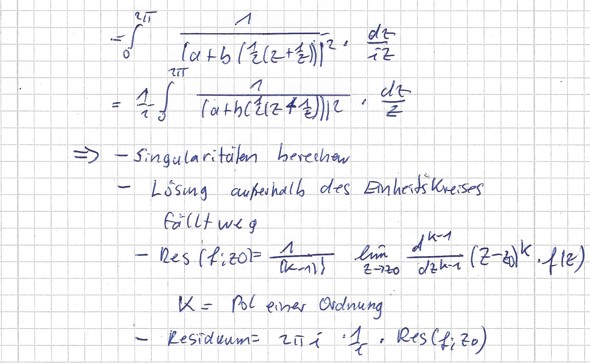 = ∫₀^{2π} 1 / (a+b(½(z+1/z)))² · dz/iz
= 1/i ∫₀^{2π} 1 / (a+b(½(z+1/z)))² · dz/z
⇒ - Singularitäten berechen
- Lösung außerhalb des Einheitskreises
fällt weg
- Res(f;z0)= 1/(k-1)! lim_{z→z0} d^{k-1}/dz^{k-1} (z-z0)^k · f(z)
K = Pol einer Ordnung
- Residuum= 2πi · 1/i · Res(f;z0)